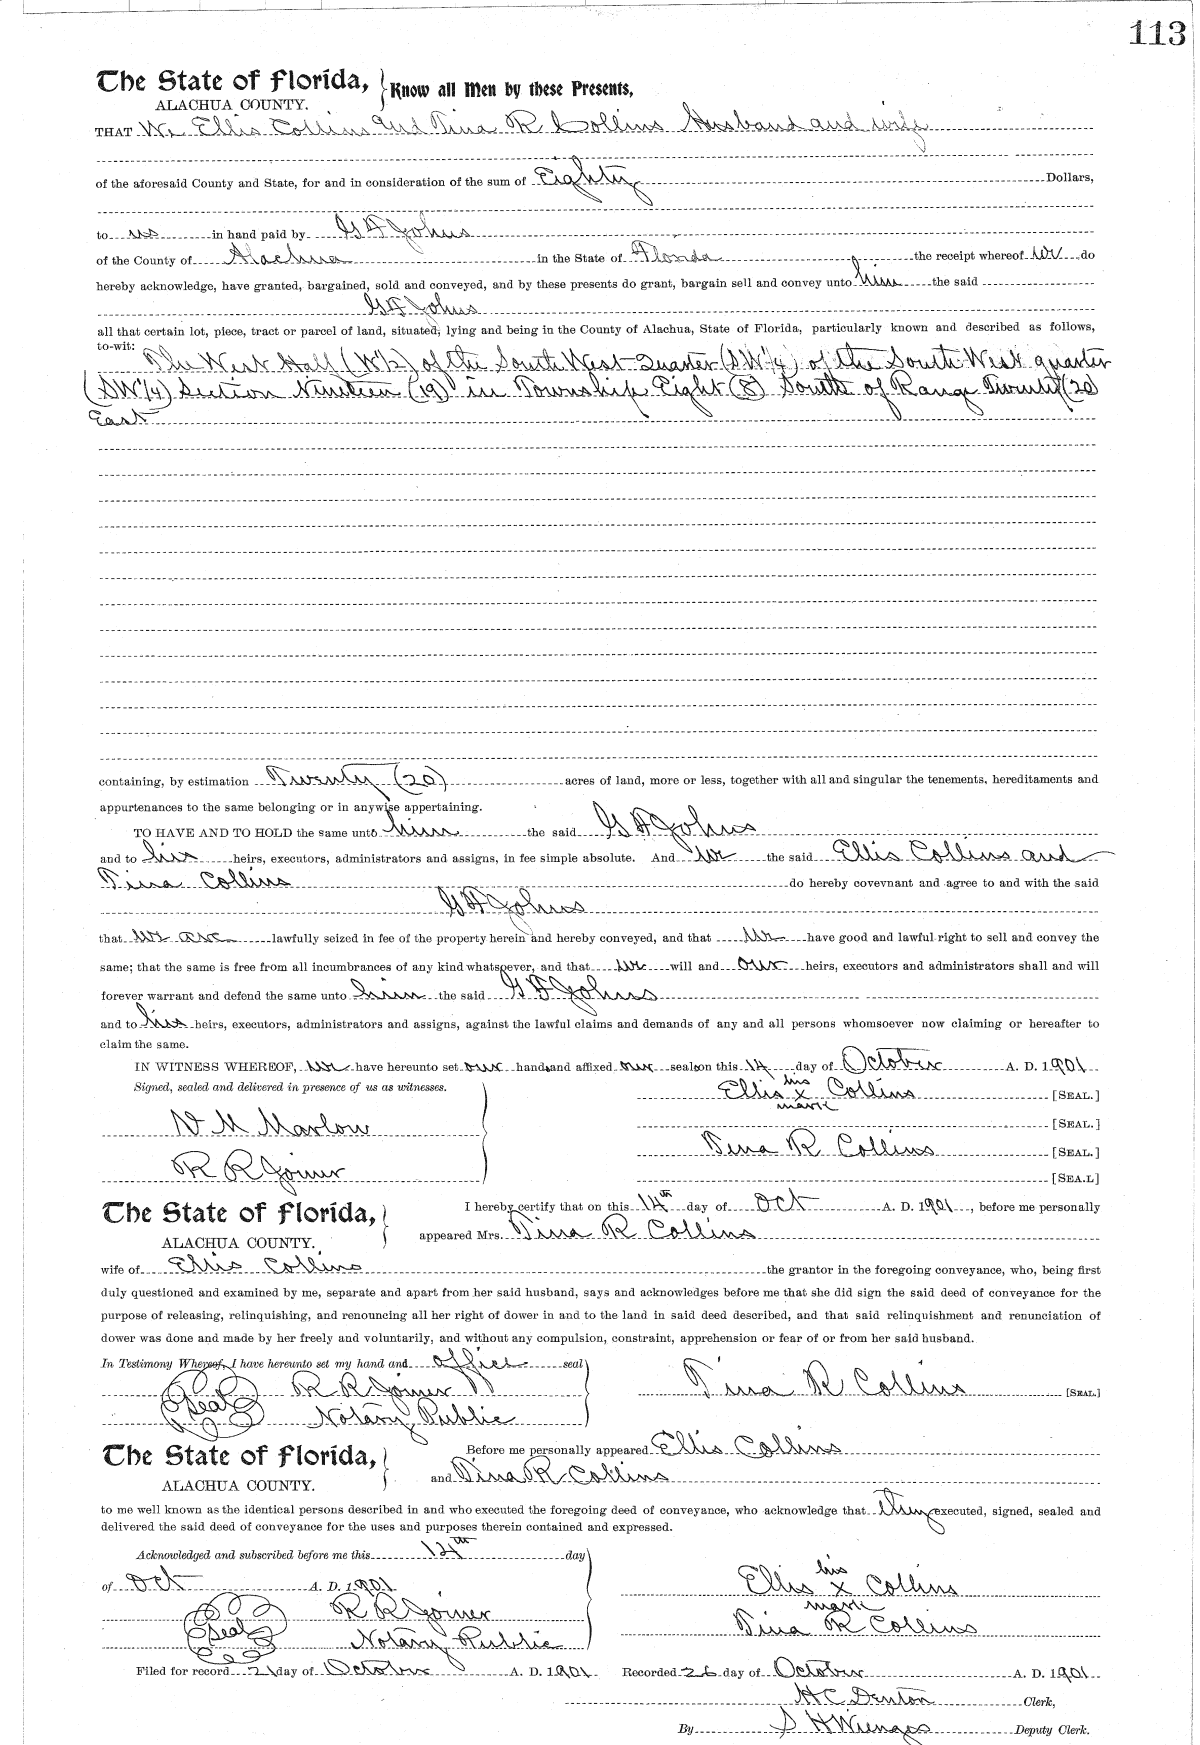 113
The State of Florida, } Know all Men by these Presents,
ALACHUA COUNTY.
THAT We Ellis Collins and Tina R Collins Husband and wife
of the aforesaid County and State, for and in consideration of the sum of Eighty Dollars,
to us in hand paid by G F Johns
of the County of Alachua in the State of Florida the receipt whereof we do
hereby acknowledge, have granted, bargained, sold and conveyed, and by these presents do grant, bargain sell and convey unto him the said
G F Johns
all that certain lot, piece, tract or parcel of land, situated, lying and being in the County of Alachua, State of Florida, particularly known and described as follows,
to-wit:
The West Half (W½) of the South West Quarter (SW¼) of the South West quarter
(SW¼) Section Nineteen (19) in Township Eight (8) South of Range Twenty (20)
East
containing, by estimation Twenty (20) acres of land, more or less, together with all and singular the tenements, hereditaments and
appurtenances to the same belonging or in anywise appertaining.
TO HAVE AND TO HOLD the same unto him the said G F Johns
and to his heirs, executors, administrators and assigns, in fee simple absolute. And we the said Ellis Collins and
Tina Collins do hereby covevnant and agree to and with the said
G F Johns
that we are lawfully seized in fee of the property herein and hereby conveyed, and that we have good and lawful right to sell and convey the
same; that the same is free from all incumbrances of any kind whatsoever, and that we will and our heirs, executors and administrators shall and will
forever warrant and defend the same unto him the said G F Johns
and to his heirs, executors, administrators and assigns, against the lawful claims and demands of any and all persons whomsoever now claiming or hereafter to
claim the same.
IN WITNESS WHEREOF, we have hereunto set our hands and affixed our seals on this 14 day of October A. D. 1901
Signed, sealed and delivered in presence of us as witnesses.
his
Ellis x Collins [SEAL.]
mark
N M Marlow [SEAL.]
Tina R Collins [SEAL.]
R R Joiner [SEA.L]
The State of Florida, } I hereby certify that on this 14th day of Oct A. D. 1901, before me personally
ALACHUA COUNTY. appeared Mrs. Tina R Collins
wife of Ellis Collins the grantor in the foregoing conveyance, who, being first
duly questioned and examined by me, separate and apart from her said husband, says and acknowledges before me that she did sign the said deed of conveyance for the
purpose of releasing, relinquishing, and renouncing all her right of dower in and to the land in said deed described, and that said relinquishment and renunciation of
dower was done and made by her freely and voluntarily, and without any compulsion, constraint, apprehension or fear of or from her said husband.
In Testimony Whereof, I have hereunto set my hand and office seal
Seal R R Joiner Tina R Collins [SEAL.]
Notary Public
The State of Florida, } Before me personally appeared Ellis Collins
ALACHUA COUNTY. and Tina R Collins
to me well known as the identical persons described in and who executed the foregoing deed of conveyance, who acknowledge that they executed, signed, sealed and
delivered the said deed of conveyance for the uses and purposes therein contained and expressed.
Acknowledged and subscribed before me this 14th day
of Oct A. D. 1901
his
Ellis x Collins
mark
Seal R R Joiner
Tina R Collins
Notary Public
Filed for record 21 day of October A. D. 1901 Recorded 26 day of October A. D. 1901
H C Denton Clerk,
By S H Wienges Deputy Clerk.